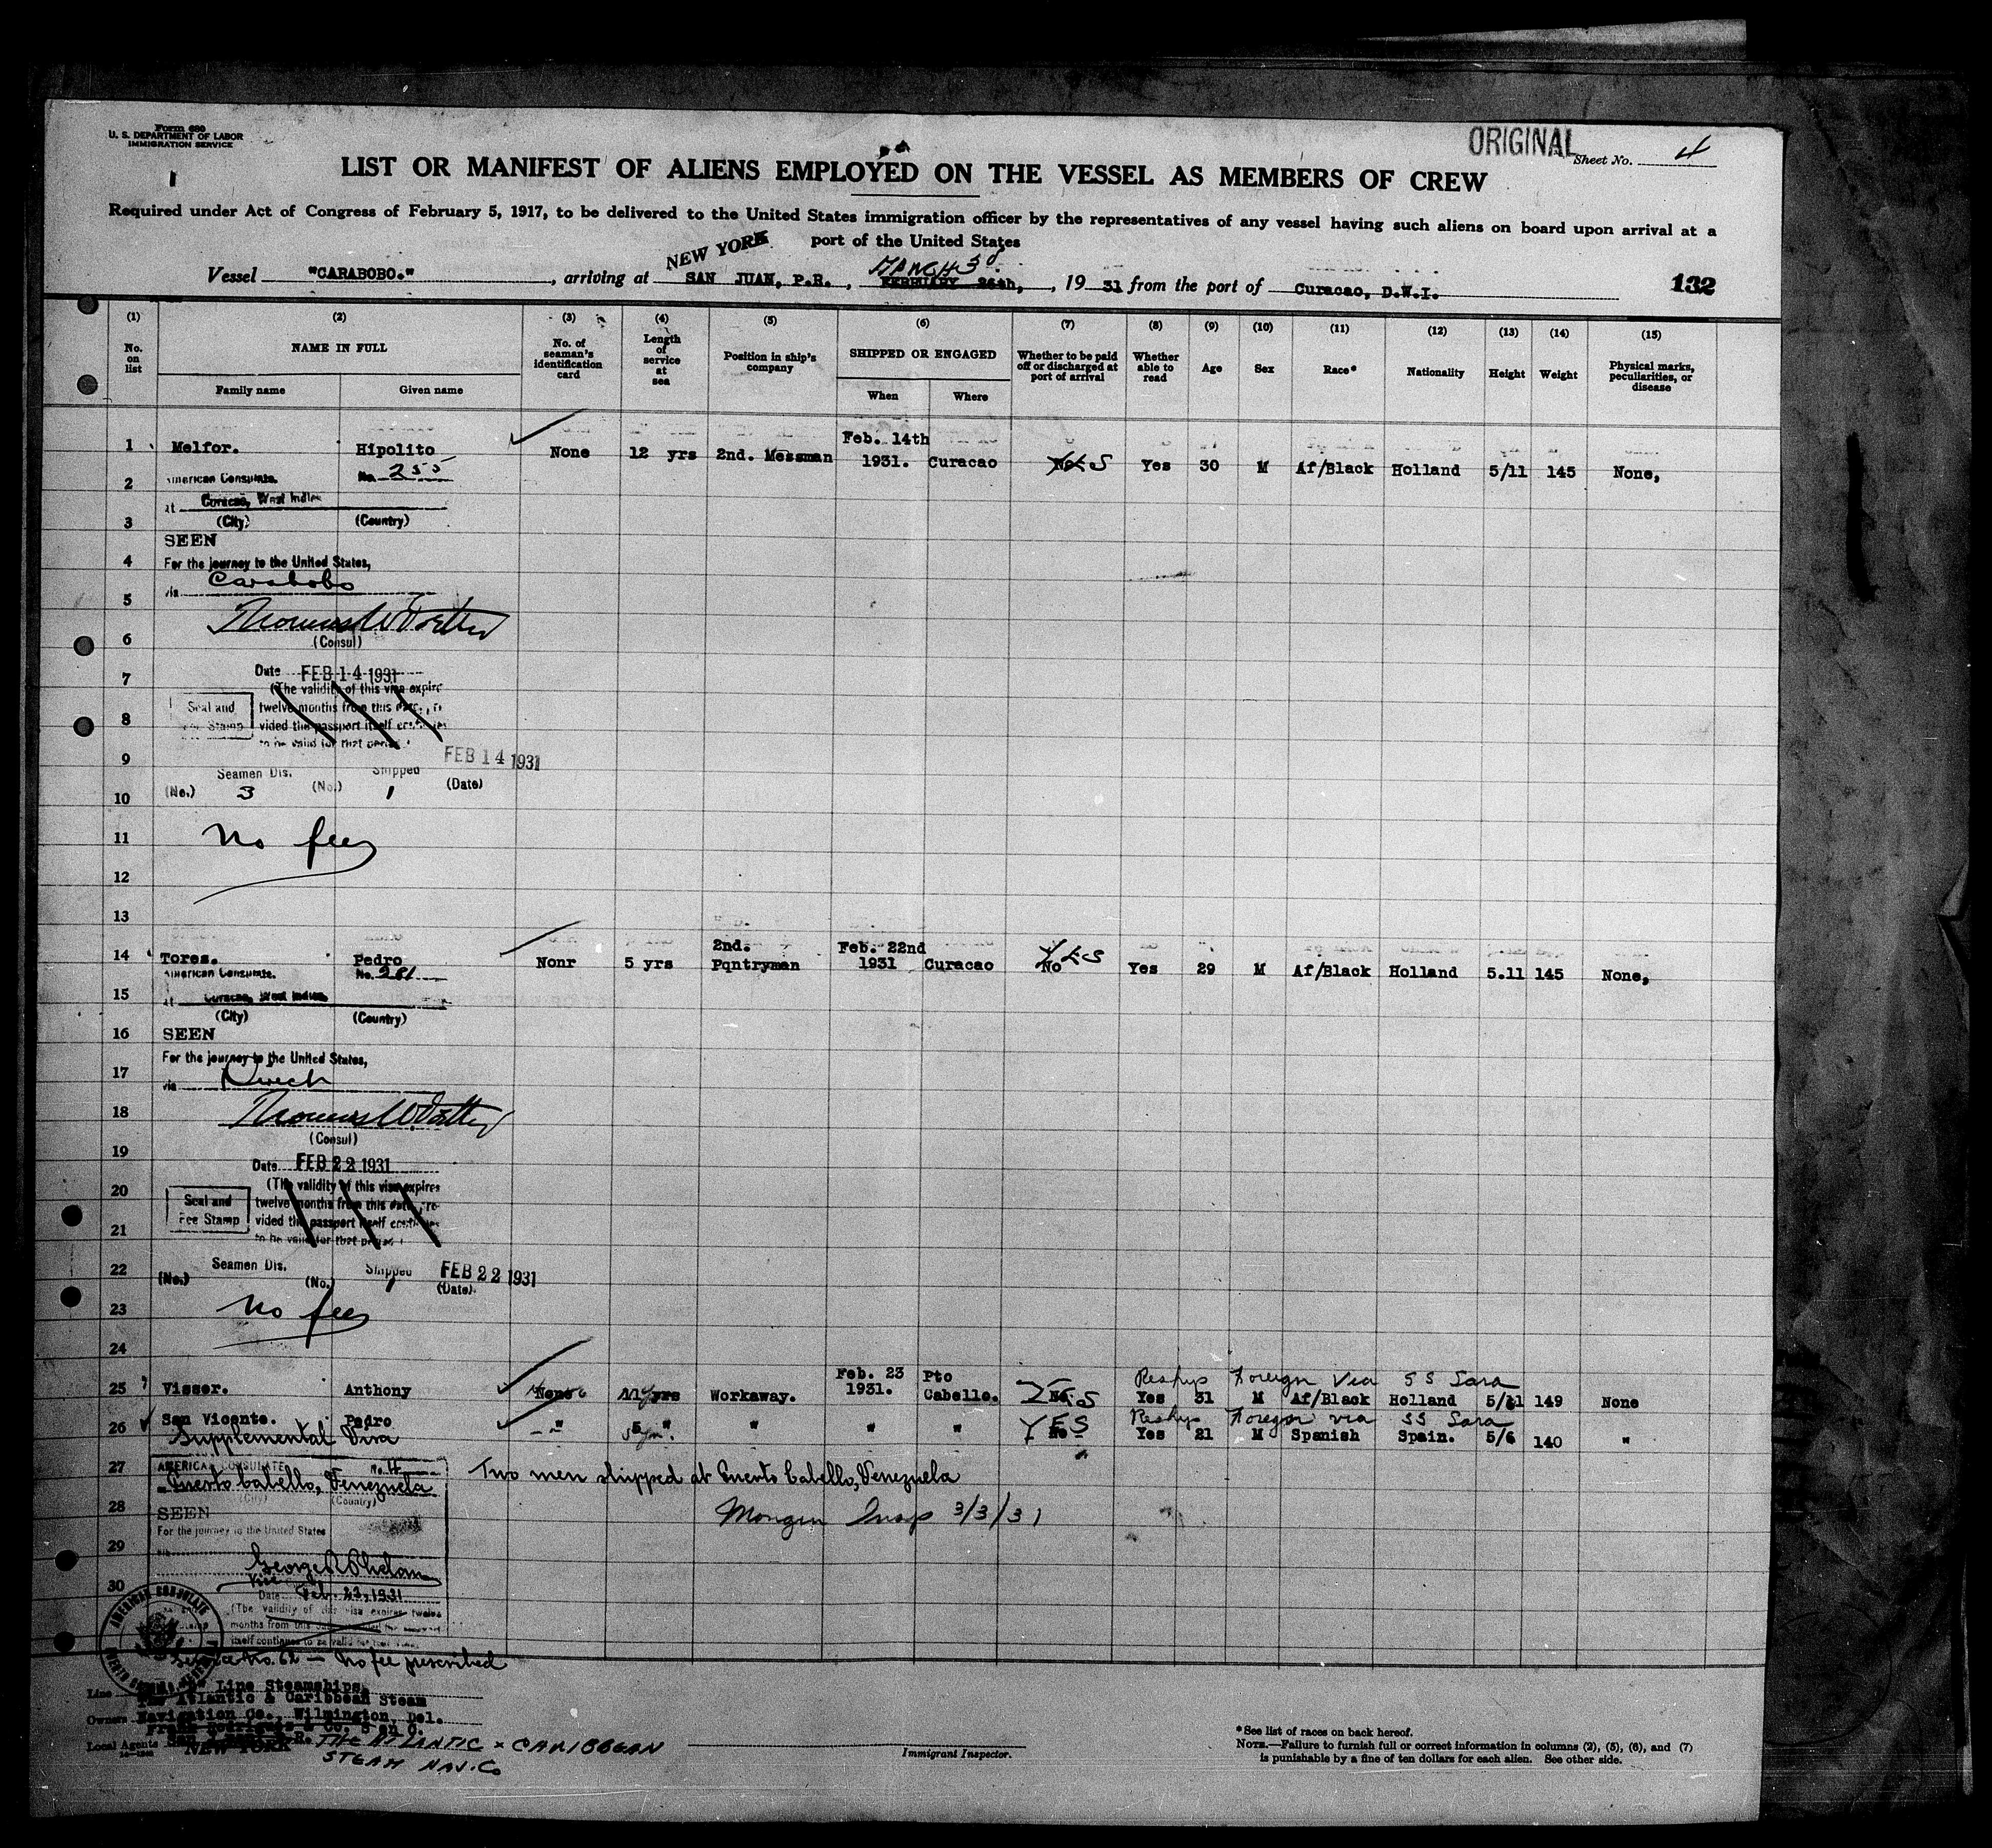 Form 680
U. S. DEPARTMENT OF LABOR
IMMIGRATION SERVICE
ORIGINAL
Sheet No. 4
LIST OR MANIFEST OF ALIENS EMPLOYED ON THE VESSEL AS MEMBERS OF CREW
Required under Act of Congress of February 5, 1917, to be delivered to the United States immigration officer by the representatives of any vessel having such aliens on board upon arrival at a
port of the United States
NEW YORK MARCH 3d
Vessel "CARABOBO." , arriving at SAN JUAN, P.R. , FEBRUARY 26th, , 19 31 from the port of Curacao, D.W.I. 132
(1) (2) (3) (4) (5) (6) (7) (8) (9) (10) (11) (12) (13) (14) (15)
No. on list NAME IN FULL No. of seaman's identification card Length of service at sea Position in ship's company SHIPPED OR ENGAGED Whether to be paid off or discharged at port of arrival Whether able to read Age Sex Race* Nationality Height Weight Physical marks, peculiarities, or disease
Family name Given name When Where
1 Melfor. Hipolito None 12 yrs 2nd. Messman Feb. 14th 1931. Curacao Yes 30 M Af/Black Holland 5/11 145 None,
2 American Consulate. No. 255
at Curacao, West Indies
3 (City) (Country)
SEEN
4 For the journey to the United States,
via Carabobo
5
6 (Consul)
7 Date FEB 14 1931
(The validity of this visa expires
Seal and twelve months from this date, pro
8 Fee Stamp vided the passport itself continues
to be valid for that period.
9 FEB 14 1931
Seamen Dis. Shipped
10 (No.) 3 (No.) 1 (Date)
11 No fee
12
13
14 Tores. Pedro Nonr 5 yrs 2nd. Pqntryman Feb. 22nd 1931 Curacao No YES Yes 29 M Af/Black Holland 5.11 145 None,
American Consulate. No. 281
15 at Curacao, West Indies.
(City) (Country)
16 SEEN
For the journey to the United States,
17 via
18
(Consul)
19 Date FEB 22 1931
(The validity of this visa expires
20 Seal and twelve months from this date, pro-
21 Fee Stamp vided the passport itself continues
to be valid for that period.
22 Seamen Dis. Shipped FEB 22 1931
(No.) (No.) 1 (Date)
23 No fee
24
Reships Foreign Via SS Sara
25 Visser. Anthony None yrs Workaway. Feb. 23 1931. Pto Cabello. YES Yes 31 M Af/Black Holland 149 None
Reships Foreign via SS Sara
26 San Vicente. Pedro " 5 " " " " No YES Yes 21 M Spanish Spain. 5/6 140 "
Supplemental Visa
27 AMERICAN CONSULATE No. 4
Puerto Cabello, Venezuela Two men shipped at Puerto Cabello, Venezuela
(City) (Country)
28 SEEN Insp 3/3/31
For the journey to the United States
29 via
George R Phelan
30 Vice
Date Feb. 23, 1931
(The validity of this visa expires twelve
months from this
itself continues to be valid for
AMERICAN CONSULATE
Service No. 62 — No fee prescribed
Line Line Steamships,
The Atlantic & Caribbean Steam
Owners Navigation Co., Wilmington, Del.
& Co. S en C.
Local Agents NEW YORK THE ATLANTIC & CARIBBEAN
STEAM NAV. Co
Immigrant Inspector.
*See list of races on back hereof.
NOTE.—Failure to furnish full or correct information in columns (2), (5), (6), and (7)
is punishable by a fine of ten dollars for each alien. See other side.